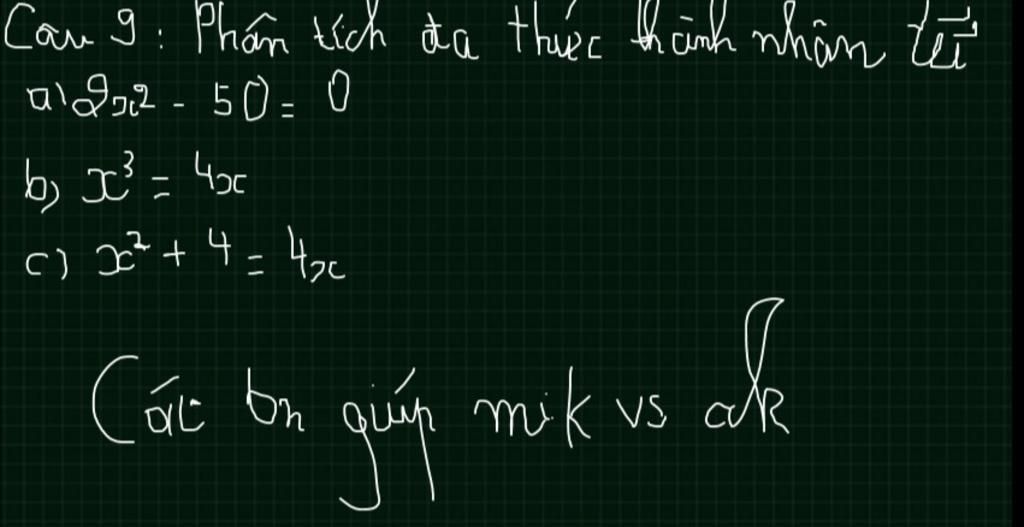 Câu 9: Phân tích đa thức thành nhân tử
a) 2x² - 50 = 0
b) x³ = 4x
c) x² + 4 = 4x
Các bn giúp mik vs ak